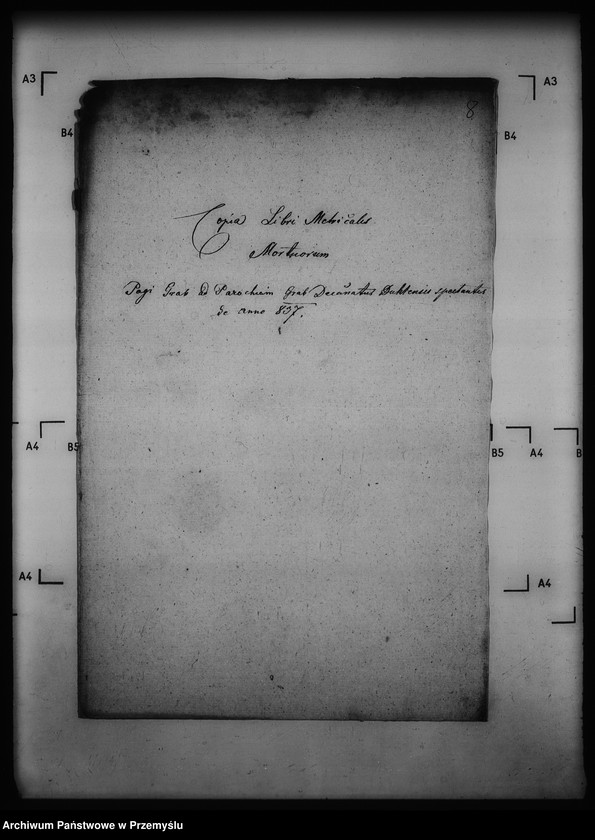 A3
A3
8
B4
B4
Copia Libri Metricalis
Mortuorum
Pagi Grab ad Parochiam Grab Decanatus Duklensis spectantis
de anno 837.
A4
B5
B5
A4
B
A4
A4
Archiwum Państwowe w Przemyślu